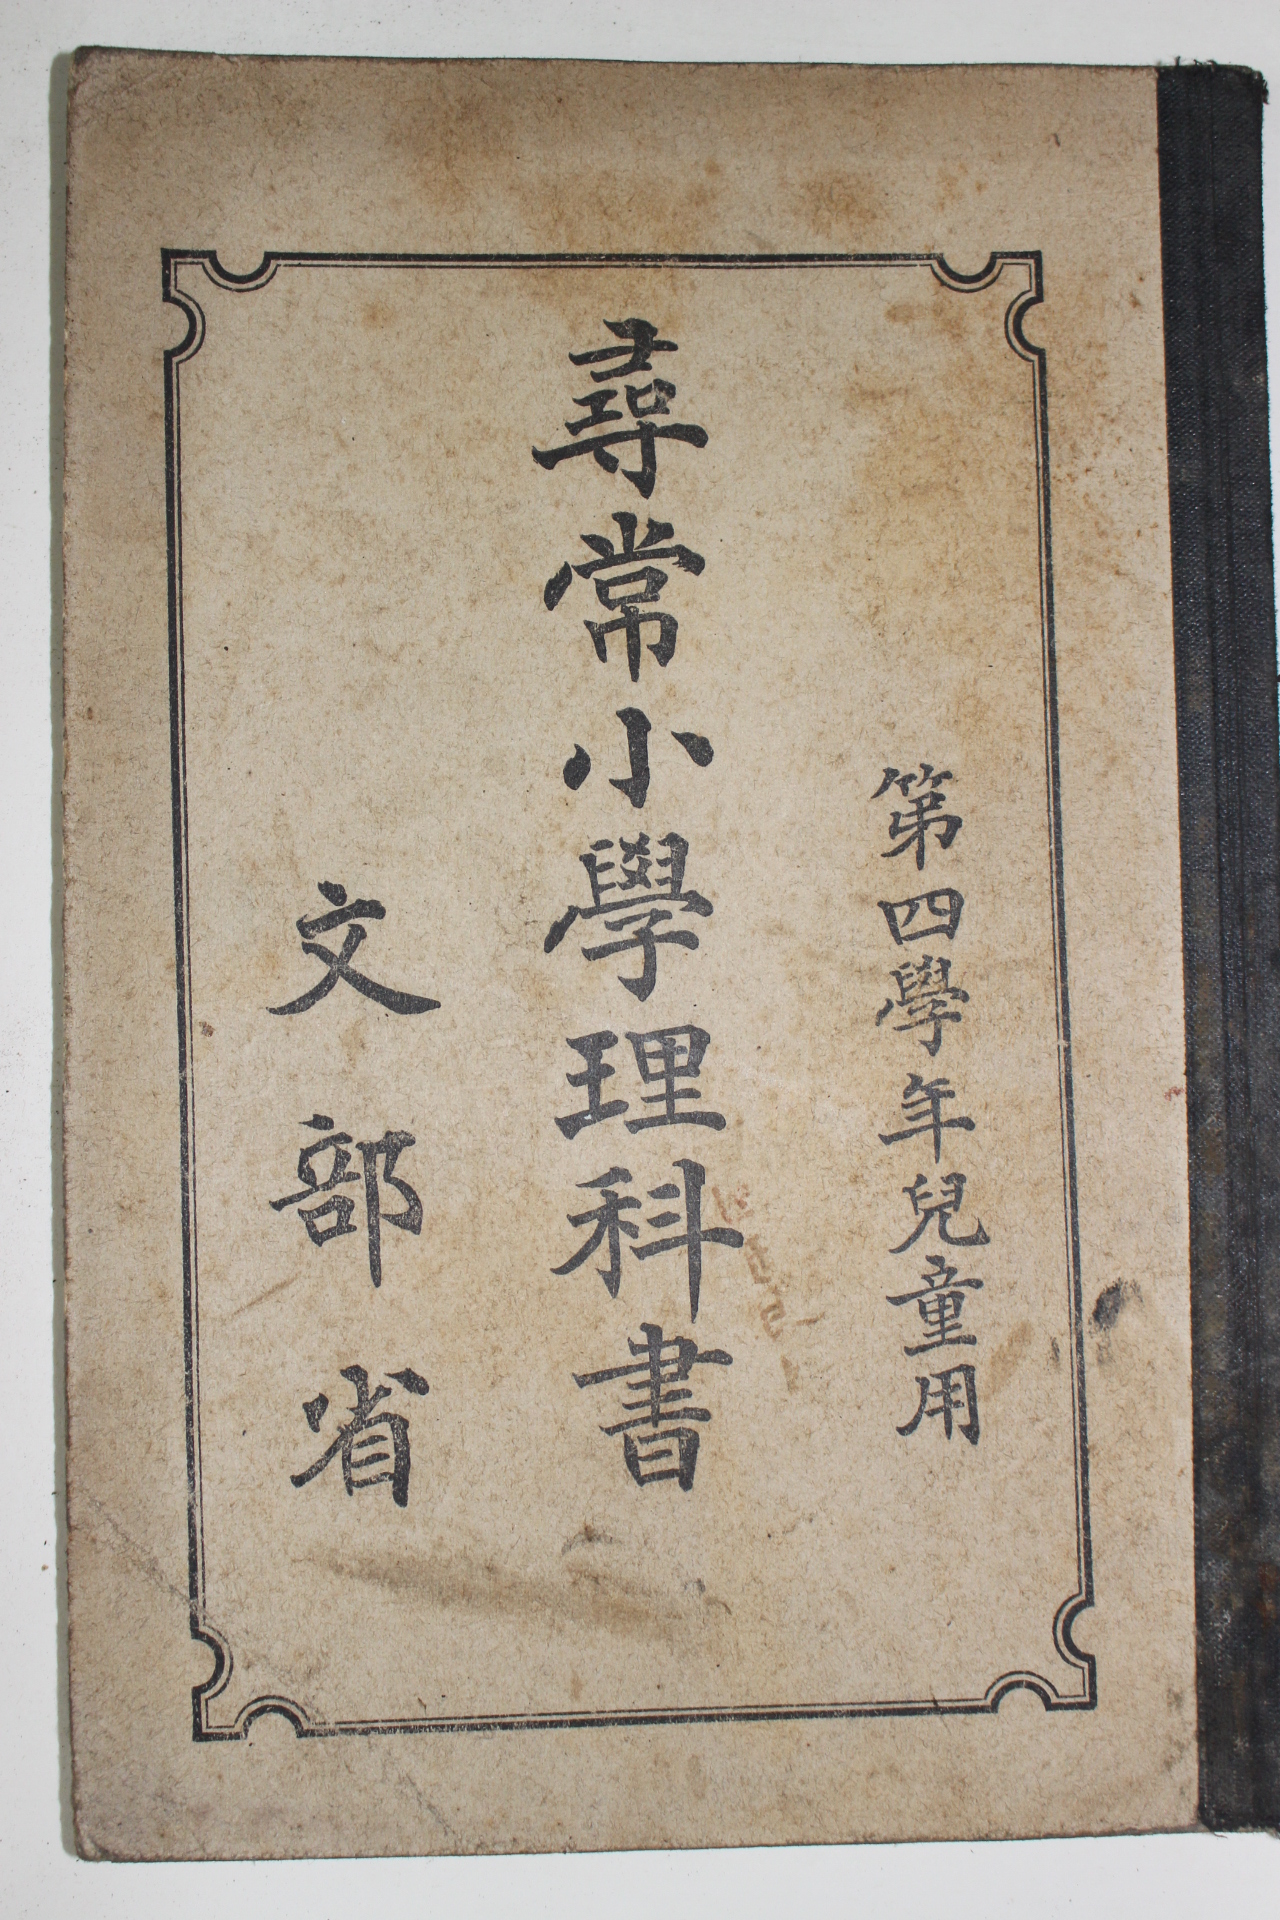 第四學年兒童用
尋常小學理科書
文部省